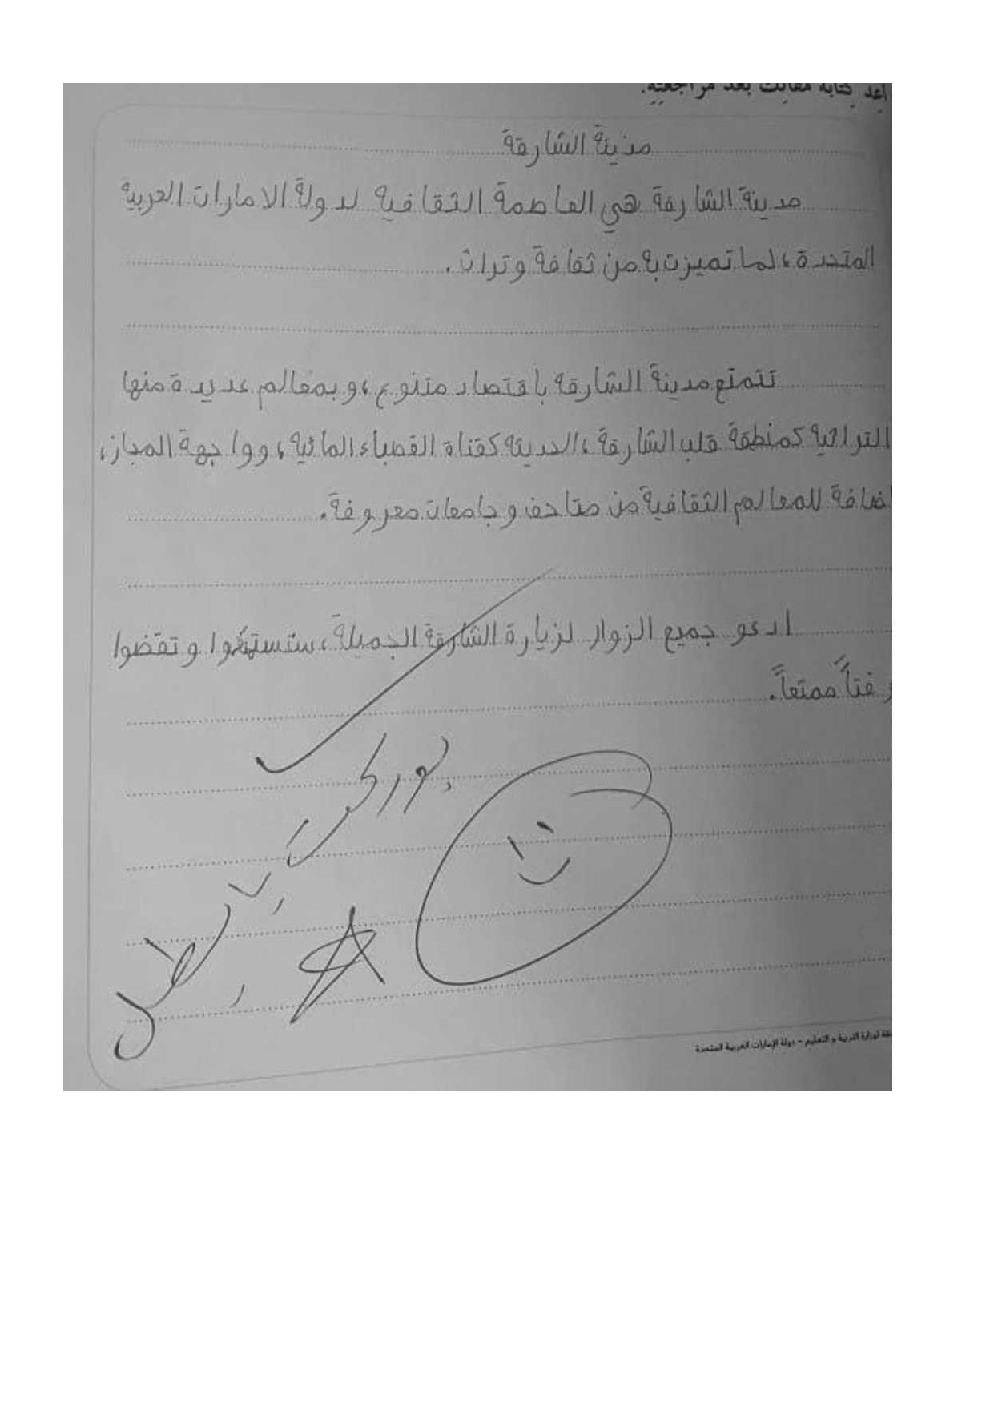 أعد كتابة مقالك بعد مراجعته.
مدينة الشارقة
مدينة الشارقة هي العاصمة الثقافية لدولة الامارات العربية
المتحدة، لما تميزت به من ثقافة وتراث.
تتمتع مدينة الشارقة باقتصاد متنوع، وبمعالم عديدة منها
التراثية كمنطقة قلب الشارقة، الحديثة كقناة القصباء المائية، وواجهة المجاز،
اضافة للمعالم الثقافية من متاحف وجامعات معروفة.
ادعو جميع الزوار لزيارة الشارقة الجميلة، ستستمتعوا وتقضوا
وقتاً ممتعاً.
بوركت
لوزارة التربية والتعليم - دولة الإمارات العربية المتحدة